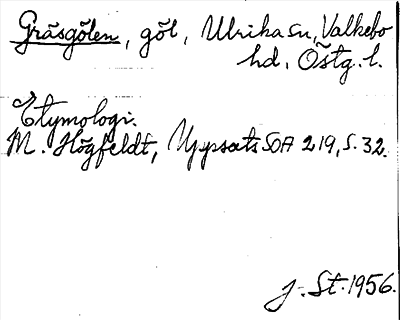 Gräsgölen, göl, Ulrika sn, Valkebo
hd. Östg. l.
Etymologi.
M. Högfeldt, Uppsats SOA 219, s. 32.
J. St. 1956.